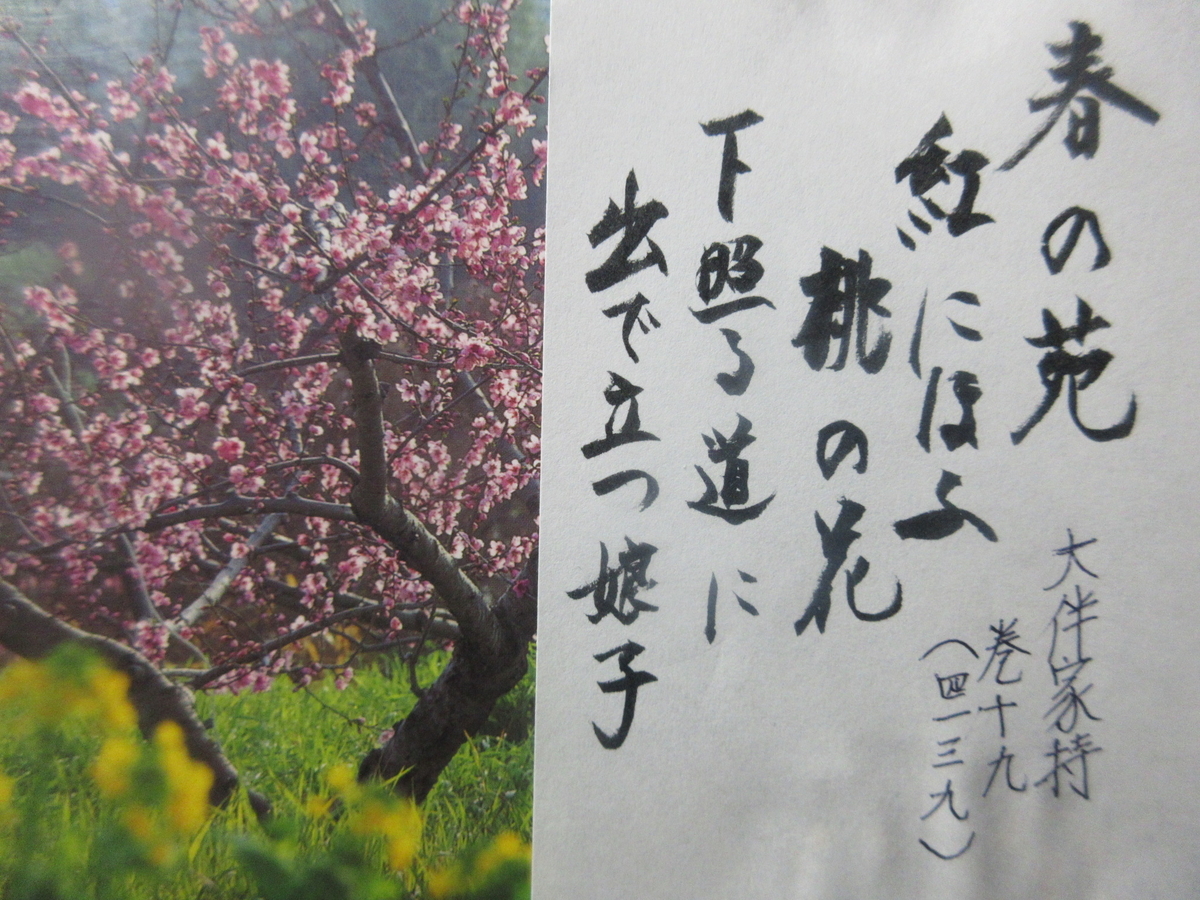 春の苑
紅にほふ
桃の花
下照る道に
出で立つ娘子
大伴家持
巻十九
（四一三九）